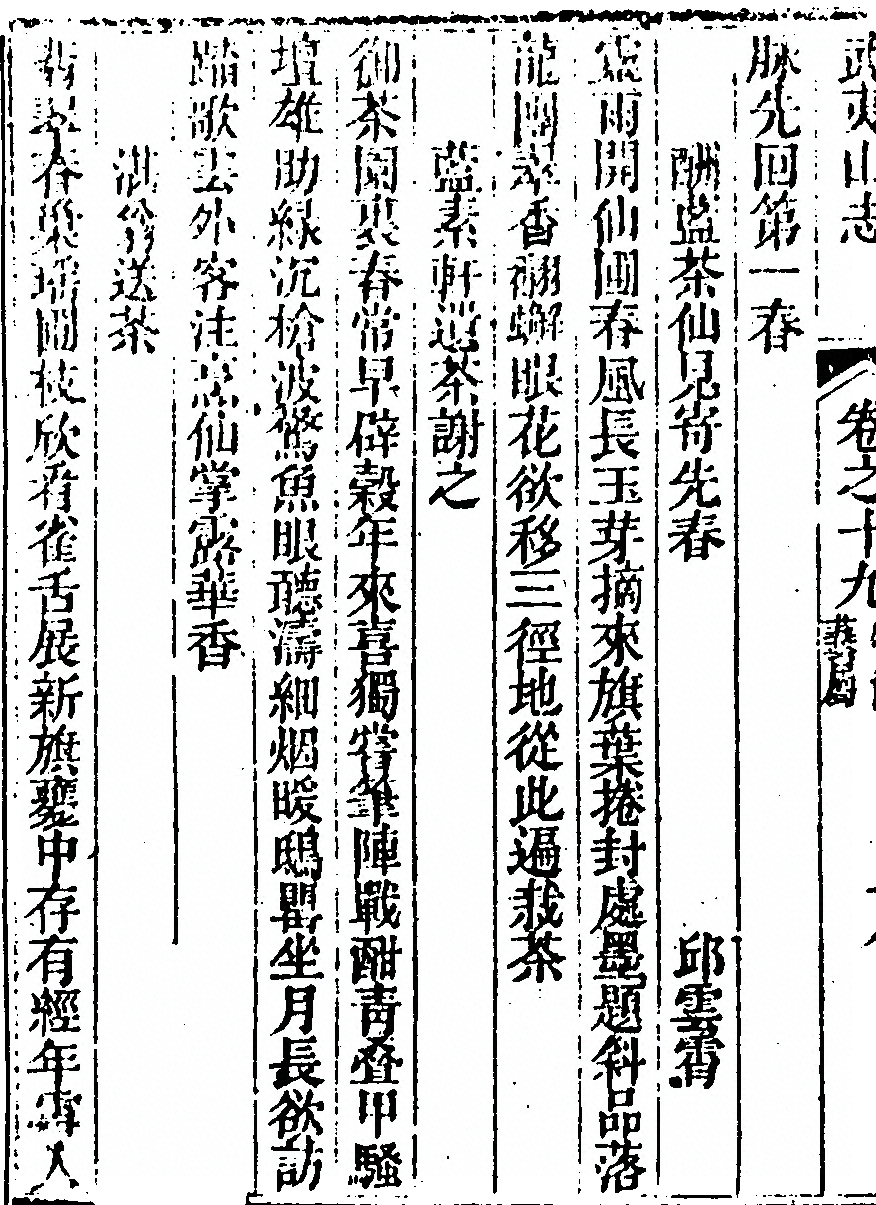 武夷山志 卷之十九
脉先回第一春
酬藍茶仙見寄先春 邱雲霄
靈雨開仙圃春風長玉芽摘來旗葉捲封處墨題斜品落
龍團翠香翻蠏眼花欲移三徑地從此遍栽茶
藍素軒遺茶謝之
御茶園裏春常早僻穀年來喜獨嘗筆陣戰酣青叠甲騷
壇雄助綠沉槍波驚魚眼聽濤細烟暖鴟罌坐月長欲訪
踏歌雲外客注烹仙掌露華香
淇翁送茶
翡翠春巢瑤圃枝欣看雀舌展新旗甕中存有經年雪人